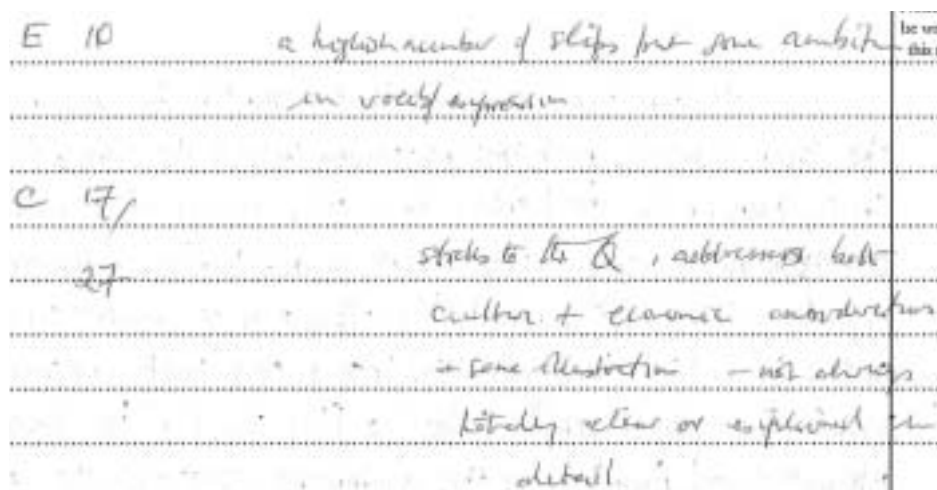 E 10 a highish number of slips but some ambition
in vocab/expression
C 17/
27
sticks to the Q, addresses both
culture + economic considerations
+ some illustration - not always
totally clear or explained in
detail
be wr
this